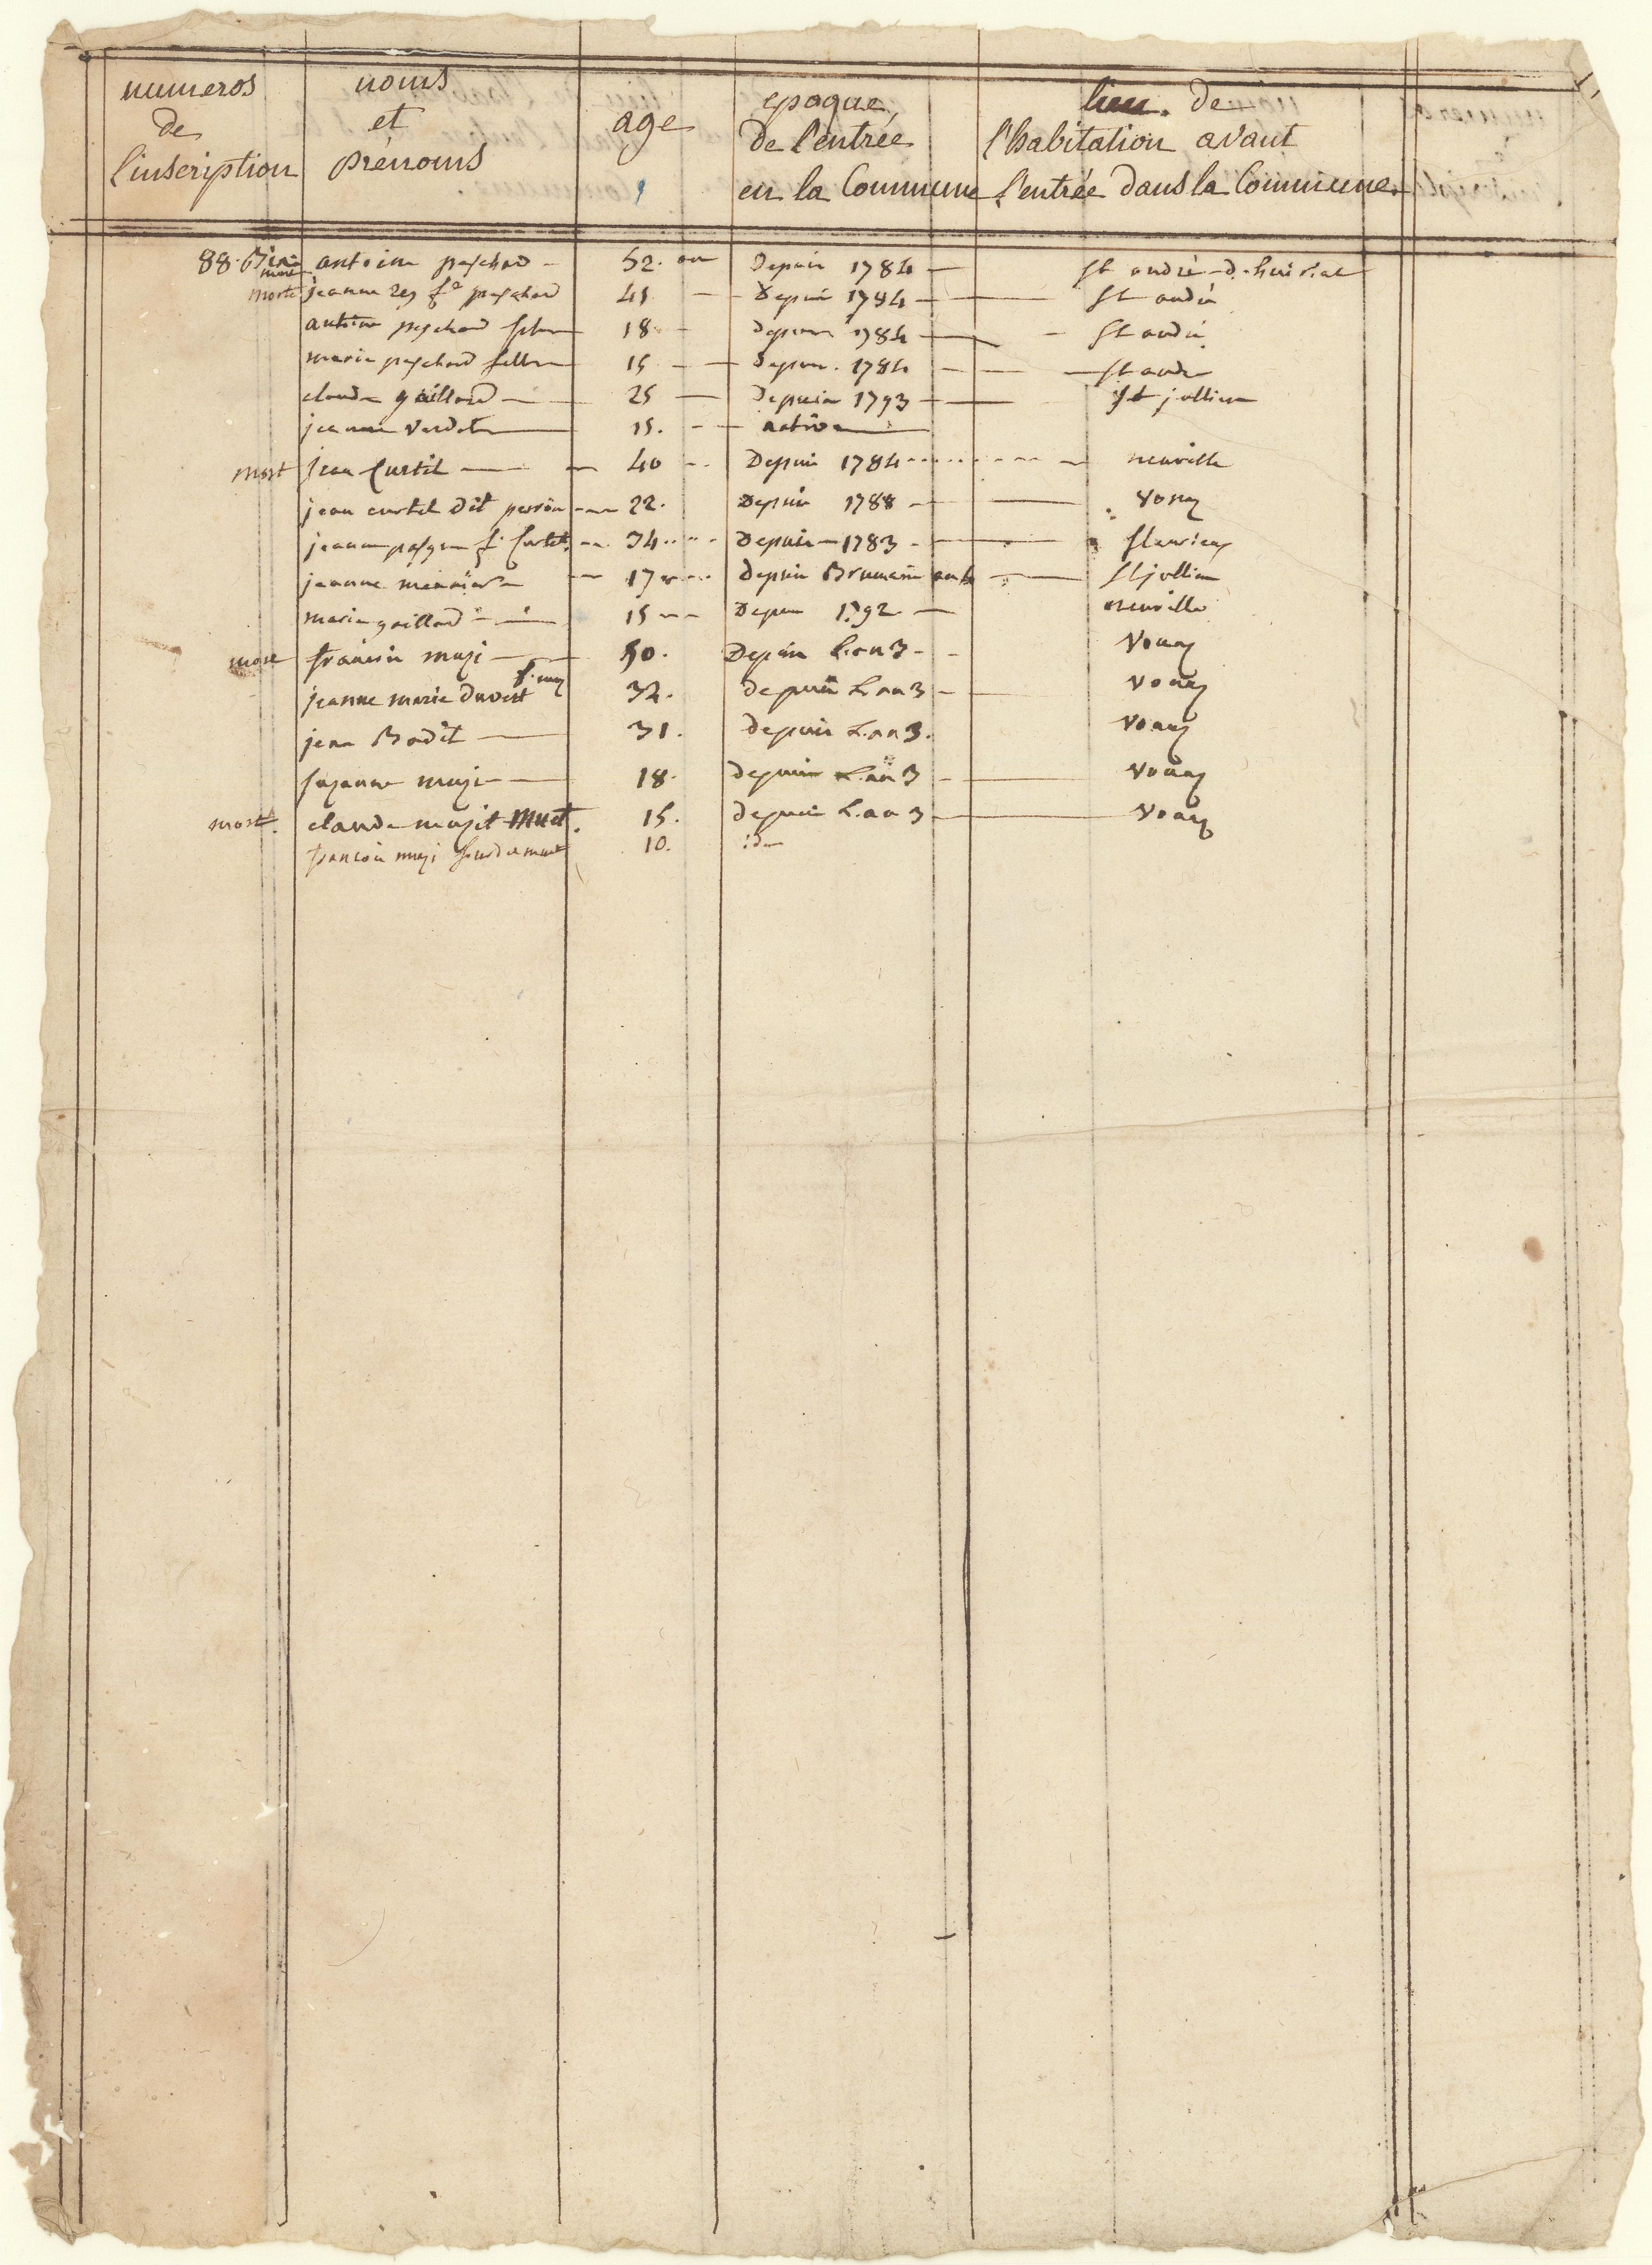 numeros
de
l'inscription
noms
et
prénoms
age
epoque
de l'entrée
en la Commune
lieu de
l'habitation avant
l'entrée dans la Commune
88. antoine paschard 52. an Depuis 1784 St andré d. huiriat
mort
morte jeanne rey fe paschard 45 Depuis 1784 St andré
antoine paschard 18 Depuis 1784 St andré
marie paschard 15 Depuis 1784 St andre
claude gaillard 25 Depuis 1793 St jullien
jeanne 15. native
mort jean Curtil 40 Depuis 1784 neuville
jean curtil dit perrin 22. Depuis 1788 Vonas
jeanne f. Curtil 34 Depuis 1783
jeanne 17 depuis Brumaire an 4 St jullien
marie gaillard 15 Depuis 1792 neuville
mort francois muzi 50. Depuis L'an 3 Vonas
jeanne marie Duvert f. muzi 32. depuis L'an 3 Vonas
jean Bodit 31. depuis L'an 3. Vonas
suzanne muzi 18. depuis L'an 3 Vonas
mort. claude muzit muet. 15. depuis L'an 3 Vonas
francois muzi sourd et muet 10. idem